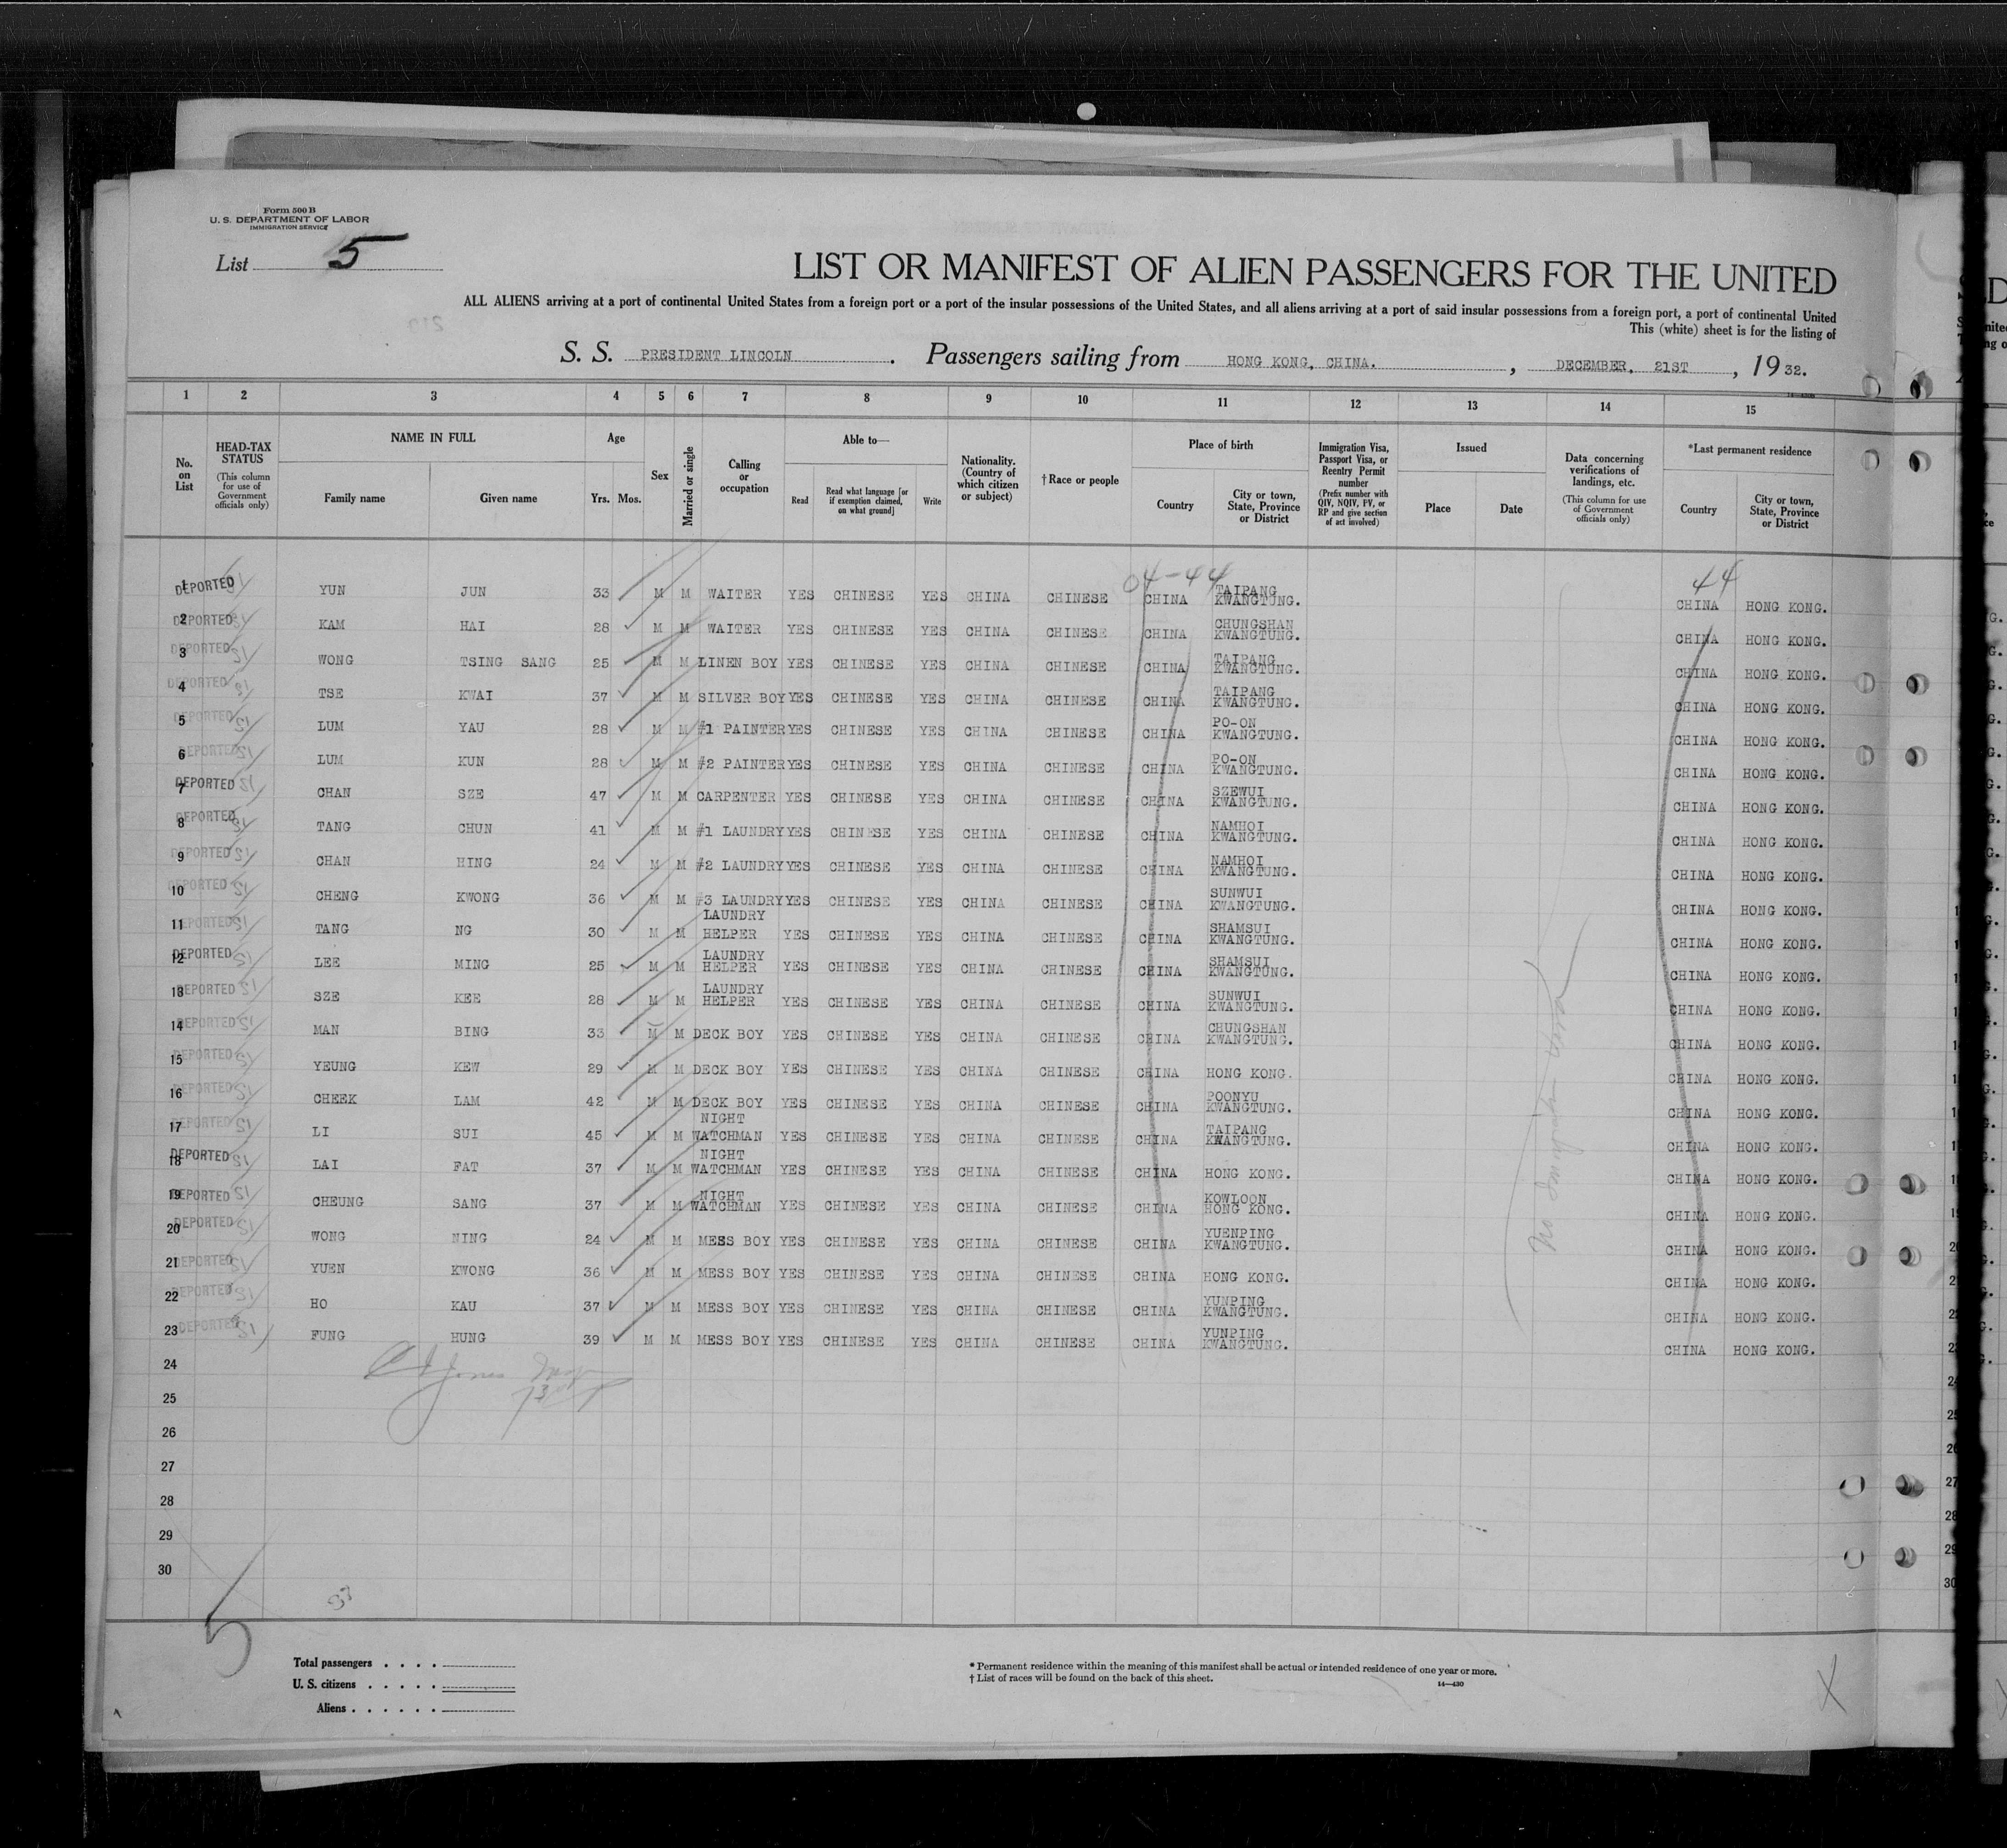 Form 500 B
U. S. DEPARTMENT OF LABOR
IMMIGRATION SERVICE
List 5
LIST OR MANIFEST OF ALIEN PASSENGERS FOR THE UNITED
ALL ALIENS arriving at a port of continental United States from a foreign port or a port of the insular possessions of the United States, and all aliens arriving at a port of said insular possessions from a foreign port, a port of continental United
This (white) sheet is for the listing of
S. S. PRESIDENT LINCOLN . Passengers sailing from HONG KONG, CHINA. , DECEMBER, 21ST , 19 32.
1 2 3 4 5 6 7 8 9 10 11 12 13 14 15
No. on List
HEAD-TAX STATUS (This column for use of Government officials only)
NAME IN FULL
Family name Given name
Age
Yrs. Mos.
Sex
Married or single
Calling or occupation
Able to—
Read
Read what language [or if exemption claimed, on what ground]
Write
Nationality. (Country of which citizen or subject)
†Race or people
Place of birth
Country
City or town, State, Province or District
Immigration Visa, Passport Visa, or Reentry Permit number (Prefix number with QIV, NQIV, PV, or RP and give section of act involved)
Issued
Place Date
Data concerning verifications of landings, etc. (This column for use of Government officials only)
*Last permanent residence
Country
City or town, State, Province or District
04-44 44
1 DEPORTED YUN JUN 33 M M WAITER YES CHINESE YES CHINA CHINESE CHINA TAIPANG KWANGTUNG. CHINA HONG KONG.
2 DEPORTED KAM HAI 28 M M WAITER YES CHINESE YES CHINA CHINESE CHINA CHUNGSHAN KWANGTUNG. CHINA HONG KONG.
3 DEPORTED WONG TSING SANG 25 M M LINEN BOY YES CHINESE YES CHINA CHINESE CHINA TAIPANG KWANGTUNG. CHINA HONG KONG.
4 DEPORTED TSE KWAI 37 M M SILVER BOY YES CHINESE YES CHINA CHINESE CHINA TAIPANG KWANGTUNG. CHINA HONG KONG.
5 DEPORTED LUM YAU 28 M M #1 PAINTER YES CHINESE YES CHINA CHINESE CHINA PO-ON KWANGTUNG. CHINA HONG KONG.
6 DEPORTED LUM KUN 28 M M #2 PAINTER YES CHINESE YES CHINA CHINESE CHINA PO-ON KWANGTUNG. CHINA HONG KONG.
7 DEPORTED CHAN SZE 47 M M CARPENTER YES CHINESE YES CHINA CHINESE CHINA SZEWUI KWANGTUNG. CHINA HONG KONG.
8 DEPORTED TANG CHUN 41 M M #1 LAUNDRY YES CHINESE YES CHINA CHINESE CHINA NAMHOI KWANGTUNG. CHINA HONG KONG.
9 DEPORTED CHAN HING 24 M M #2 LAUNDRY YES CHINESE YES CHINA CHINESE CHINA NAMHOI KWANGTUNG. CHINA HONG KONG.
10 DEPORTED CHENG KWONG 36 M M #3 LAUNDRY YES CHINESE YES CHINA CHINESE CHINA SUNWUI KWANGTUNG. CHINA HONG KONG.
11 DEPORTED TANG NG 30 M M LAUNDRY HELPER YES CHINESE YES CHINA CHINESE CHINA SHAMSUI KWANGTUNG. CHINA HONG KONG.
12 DEPORTED LEE MING 25 M M LAUNDRY HELPER YES CHINESE YES CHINA CHINESE CHINA SHAMSUI KWANGTUNG. CHINA HONG KONG.
13 DEPORTED SZE KEE 28 M M LAUNDRY HELPER YES CHINESE YES CHINA CHINESE CHINA SUNWUI KWANGTUNG. CHINA HONG KONG.
14 DEPORTED MAN BING 33 M M DECK BOY YES CHINESE YES CHINA CHINESE CHINA CHUNGSHAN KWANGTUNG. CHINA HONG KONG.
15 DEPORTED YEUNG KEW 29 M M DECK BOY YES CHINESE YES CHINA CHINESE CHINA HONG KONG. CHINA HONG KONG.
16 DEPORTED CHEEK LAM 42 M M DECK BOY YES CHINESE YES CHINA CHINESE CHINA POONYU KWANGTUNG. CHINA HONG KONG.
17 DEPORTED LI SUI 45 M M NIGHT WATCHMAN YES CHINESE YES CHINA CHINESE CHINA TAIPANG KWANGTUNG. CHINA HONG KONG.
18 DEPORTED LAI FAT 37 M M NIGHT WATCHMAN YES CHINESE YES CHINA CHINESE CHINA HONG KONG. CHINA HONG KONG.
19 DEPORTED CHEUNG SANG 37 M M NIGHT WATCHMAN YES CHINESE YES CHINA CHINESE CHINA KOWLOON HONG KONG. CHINA HONG KONG.
20 DEPORTED WONG NING 24 M M MESS BOY YES CHINESE YES CHINA CHINESE CHINA YUENPING KWANGTUNG. CHINA HONG KONG.
21 DEPORTED YUEN KWONG 36 M M MESS BOY YES CHINESE YES CHINA CHINESE CHINA HONG KONG. CHINA HONG KONG.
22 DEPORTED HO KAU 37 M M MESS BOY YES CHINESE YES CHINA CHINESE CHINA YUNPING KWANGTUNG. CHINA HONG KONG.
23 DEPORTED FUNG HUNG 39 M M MESS BOY YES CHINESE YES CHINA CHINESE CHINA YUNPING KWANGTUNG. CHINA HONG KONG.
No Immigration Visa
24
25
26
27
28
29
30
5
Total passengers
U. S. citizens
Aliens
* Permanent residence within the meaning of this manifest shall be actual or intended residence of one year or more.
† List of races will be found on the back of this sheet.
14—430